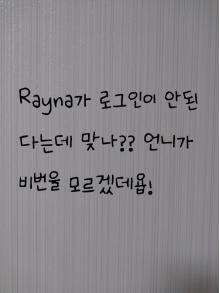 Rayna가 로그인이 안된
다는데 맞나?? 언니가
비번을 모르겠데욥!